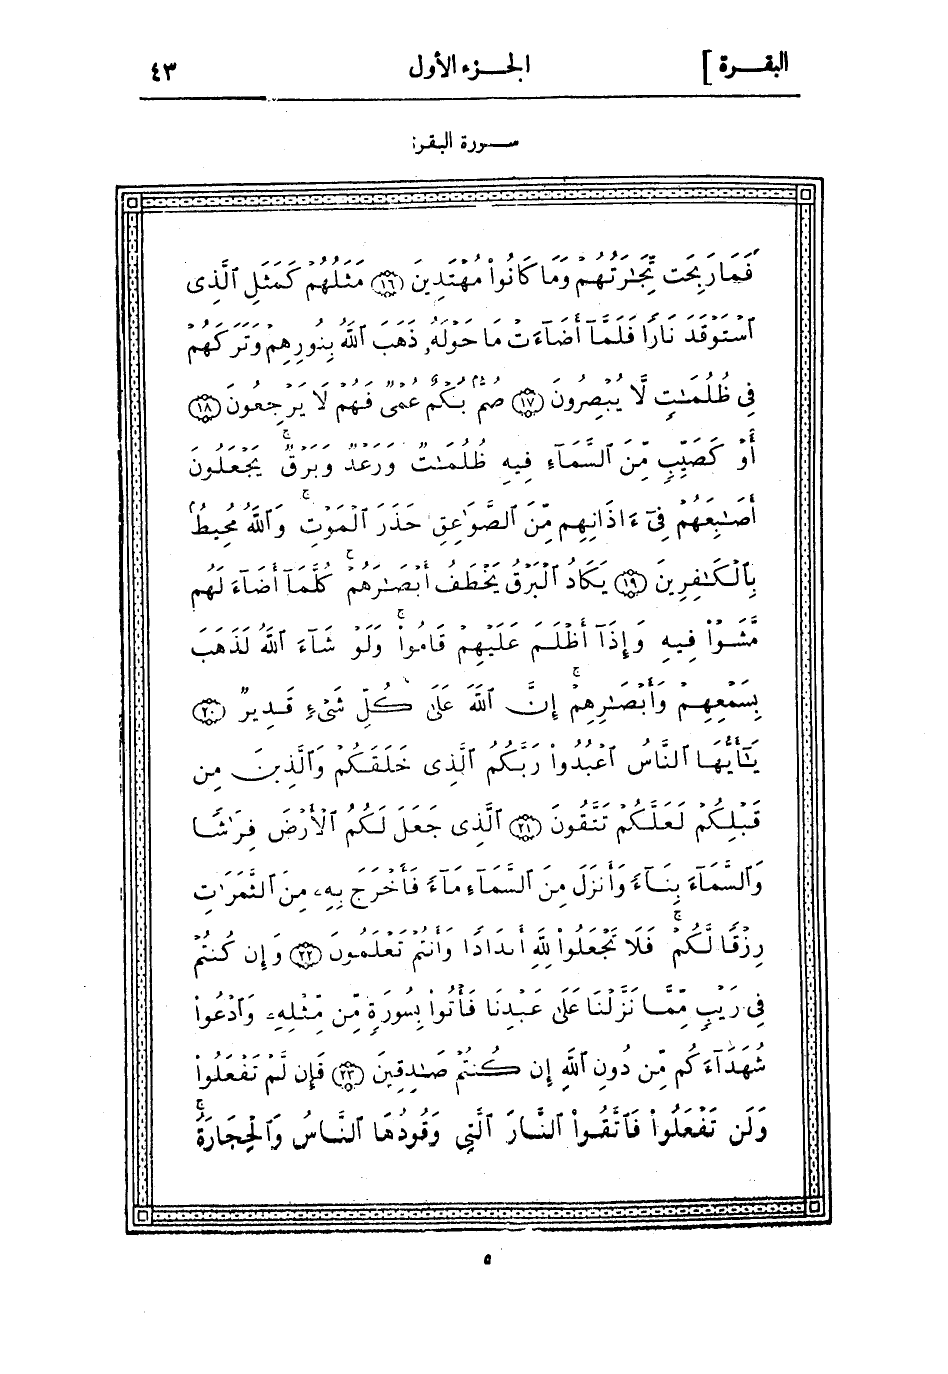 البقرة ]
الجزء الأول
٤٣
سورة البقرة
فَمَا رَبِحَت تِّجَٰرَتُهُمْ وَمَا كَانُوا۟ مُهْتَدِينَ ۝١٦ مَثَلُهُمْ كَمَثَلِ ٱلَّذِى
ٱسْتَوْقَدَ نَارًا فَلَمَّآ أَضَآءَتْ مَا حَوْلَهُۥ ذَهَبَ ٱللَّهُ بِنُورِهِمْ وَتَرَكَهُمْ
فِى ظُلُمَٰتٍ لَّا يُبْصِرُونَ ۝١٧ صُمٌّۢ بُكْمٌ عُمْىٌ فَهُمْ لَا يَرْجِعُونَ ۝١٨
أَوْ كَصَيِّبٍ مِّنَ ٱلسَّمَآءِ فِيهِ ظُلُمَٰتٌ وَرَعْدٌ وَبَرْقٌ ۚ يَجْعَلُونَ
أَصَٰبِعَهُمْ فِىٓ ءَاذَانِهِم مِّنَ ٱلصَّوَٰعِقِ حَذَرَ ٱلْمَوْتِ ۚ وَٱللَّهُ مُحِيطٌۢ
بِٱلْكَٰفِرِينَ ۝١٩ يَكَادُ ٱلْبَرْقُ يَخْطَفُ أَبْصَٰرَهُمْ ۚ كُلَّمَآ أَضَآءَ لَهُم
مَّشَوْا۟ فِيهِ وَإِذَآ أَظْلَمَ عَلَيْهِمْ قَامُوا۟ ۚ وَلَوْ شَآءَ ٱللَّهُ لَذَهَبَ
بِسَمْعِهِمْ وَأَبْصَٰرِهِمْ ۚ إِنَّ ٱللَّهَ عَلَىٰ كُلِّ شَىْءٍ قَدِيرٌ ۝٢٠
يَٰٓأَيُّهَا ٱلنَّاسُ ٱعْبُدُوا۟ رَبَّكُمُ ٱلَّذِى خَلَقَكُمْ وَٱلَّذِينَ مِن
قَبْلِكُمْ لَعَلَّكُمْ تَتَّقُونَ ۝٢١ ٱلَّذِى جَعَلَ لَكُمُ ٱلْأَرْضَ فِرَٰشًا
وَٱلسَّمَآءَ بِنَآءً وَأَنزَلَ مِنَ ٱلسَّمَآءِ مَآءً فَأَخْرَجَ بِهِۦ مِنَ ٱلثَّمَرَٰتِ
رِزْقًا لَّكُمْ ۚ فَلَا تَجْعَلُوا۟ لِلَّهِ أَندَادًا وَأَنتُمْ تَعْلَمُونَ ۝٢٢ وَإِن كُنتُمْ
فِى رَيْبٍ مِّمَّا نَزَّلْنَا عَلَىٰ عَبْدِنَا فَأْتُوا۟ بِسُورَةٍ مِّن مِّثْلِهِۦ وَٱدْعُوا۟
شُهَدَآءَكُم مِّن دُونِ ٱللَّهِ إِن كُنتُمْ صَٰدِقِينَ ۝٢٣ فَإِن لَّمْ تَفْعَلُوا۟
وَلَن تَفْعَلُوا۟ فَٱتَّقُوا۟ ٱلنَّارَ ٱلَّتِى وَقُودُهَا ٱلنَّاسُ وَٱلْحِجَارَةُ ۚ
٥